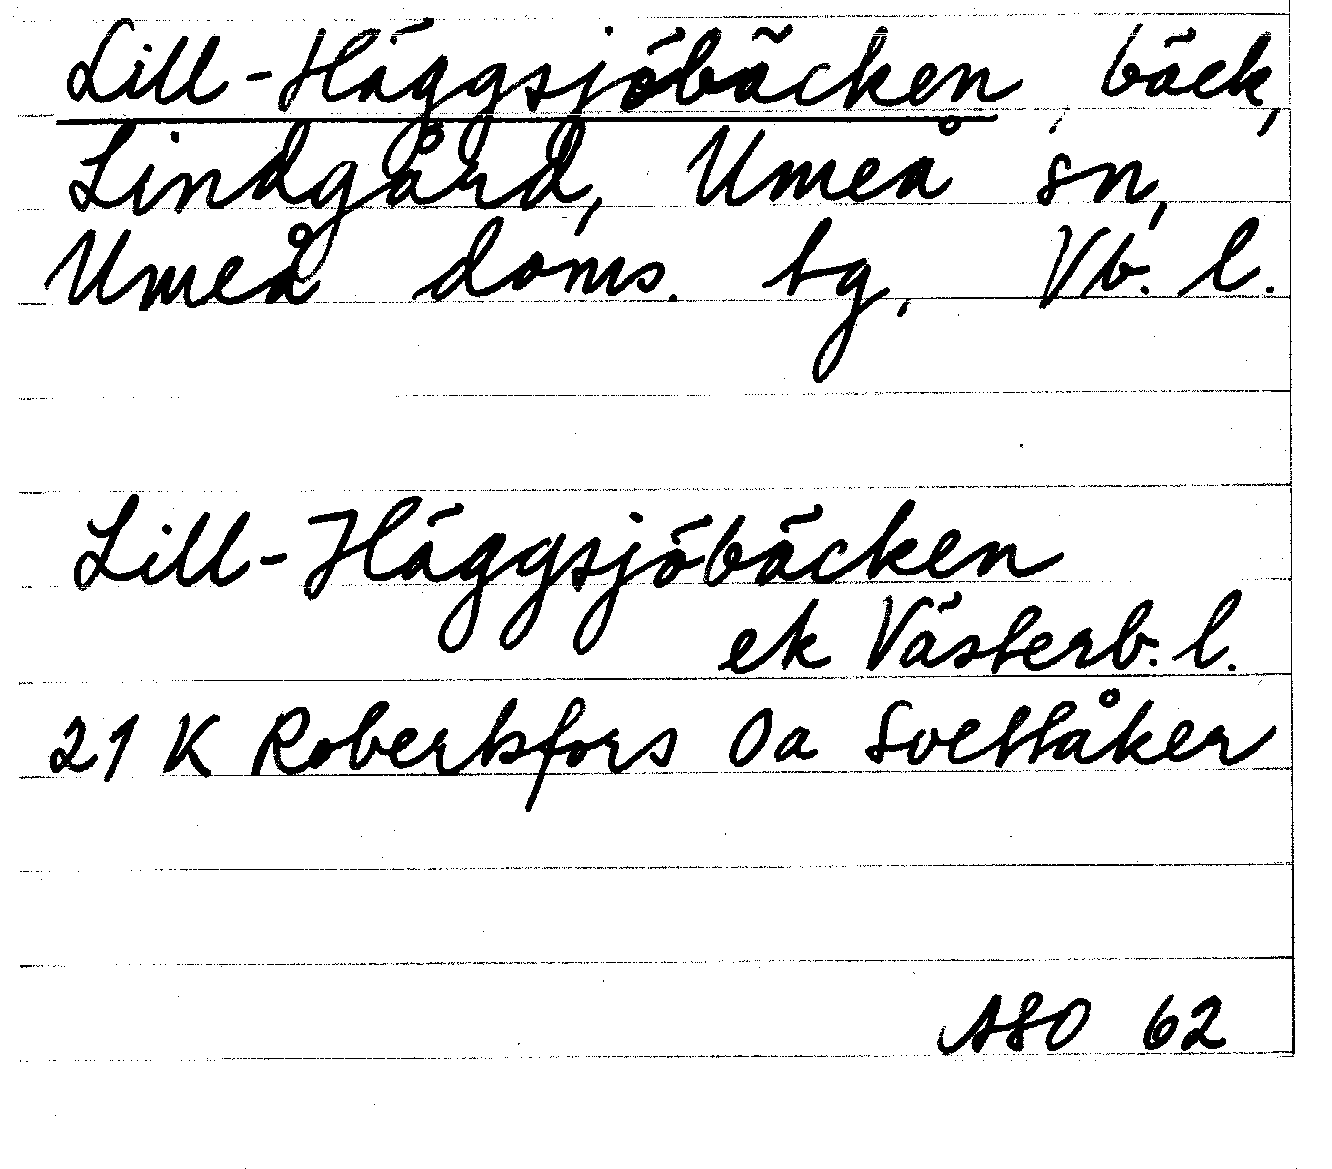 Lill-Häggsjöbäcken, bäck,
Lindgård, Umeå sn,
Umeå doms. tg. Vb. l.
Lill-Häggsjöbäcken
ek Västerb. l.
21 K Robertsfors Oa Svettåker
ASO 62